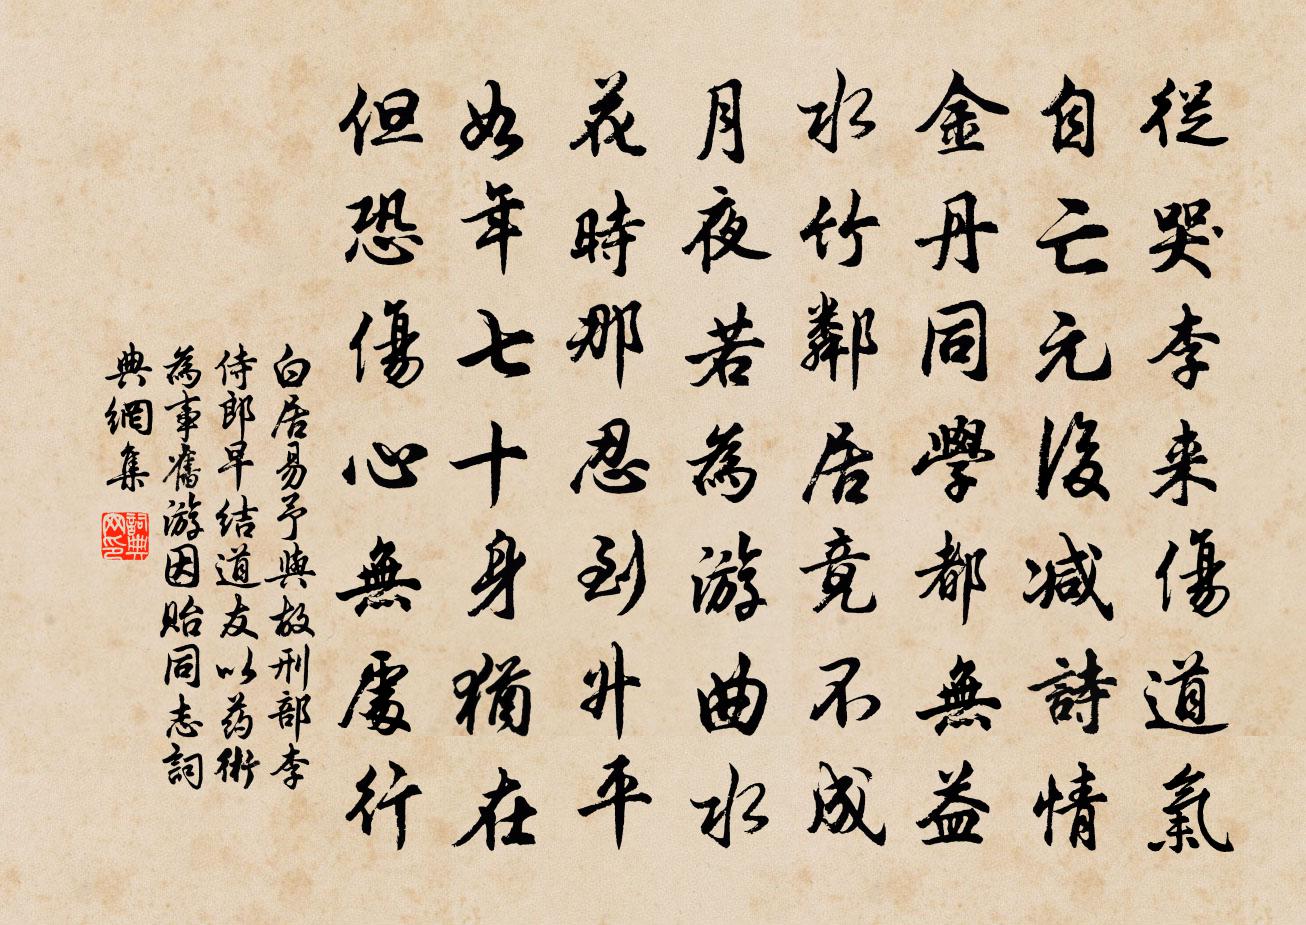 從哭李来傷道氣
自亡元後减詩情
金丹同學都無益
水竹鄰居竟不成
月夜若為游曲水
花時那忍到升平
如年七十身猶在
但恐傷心無處行
白居易予與故刑部李
侍郎早結道友以药術
為事舊游因貽同志詞
典網集
詞典
网印